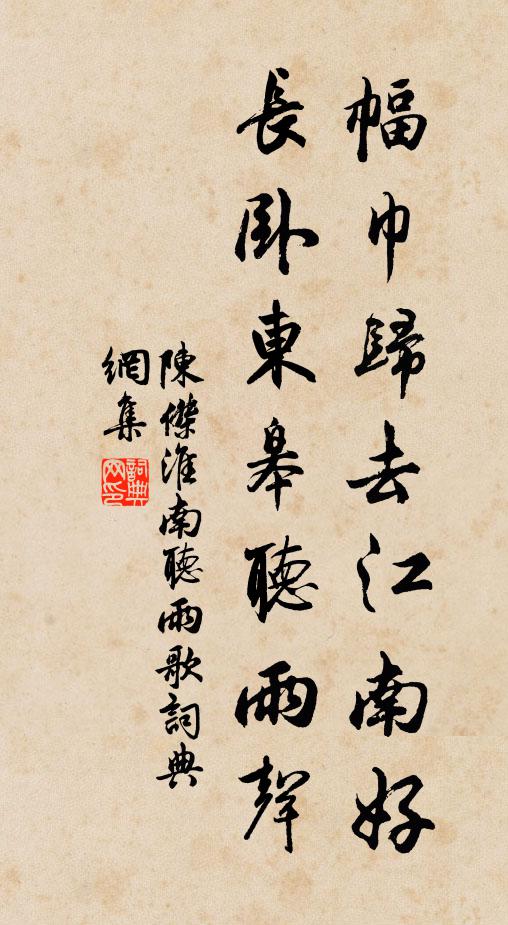 幅巾歸去江南好
長臥東皋聽雨聲
陳傑淮南聽雨歌詞典
網集
詞典網印